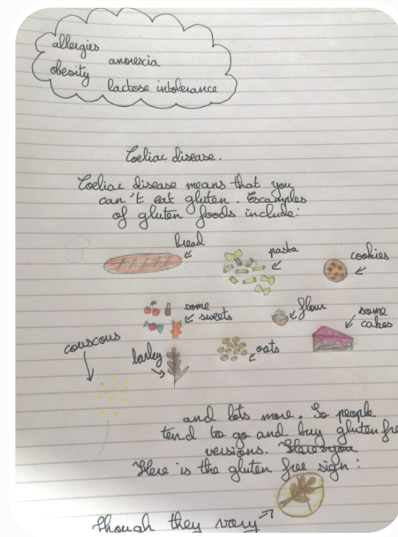 allergies
anorexia
obesity
lactose intolerance
Coeliac disease.
Coeliac disease means that you
can't eat gluten. Examples
of gluten foods include:
bread
pasta
cookies
some
sweets
flour
some
cakes
couscous
barley
oats
and lots more. So people
tend to go and buy gluten fre
versions. Here you
Here is the gluten free sign:
Though they vary